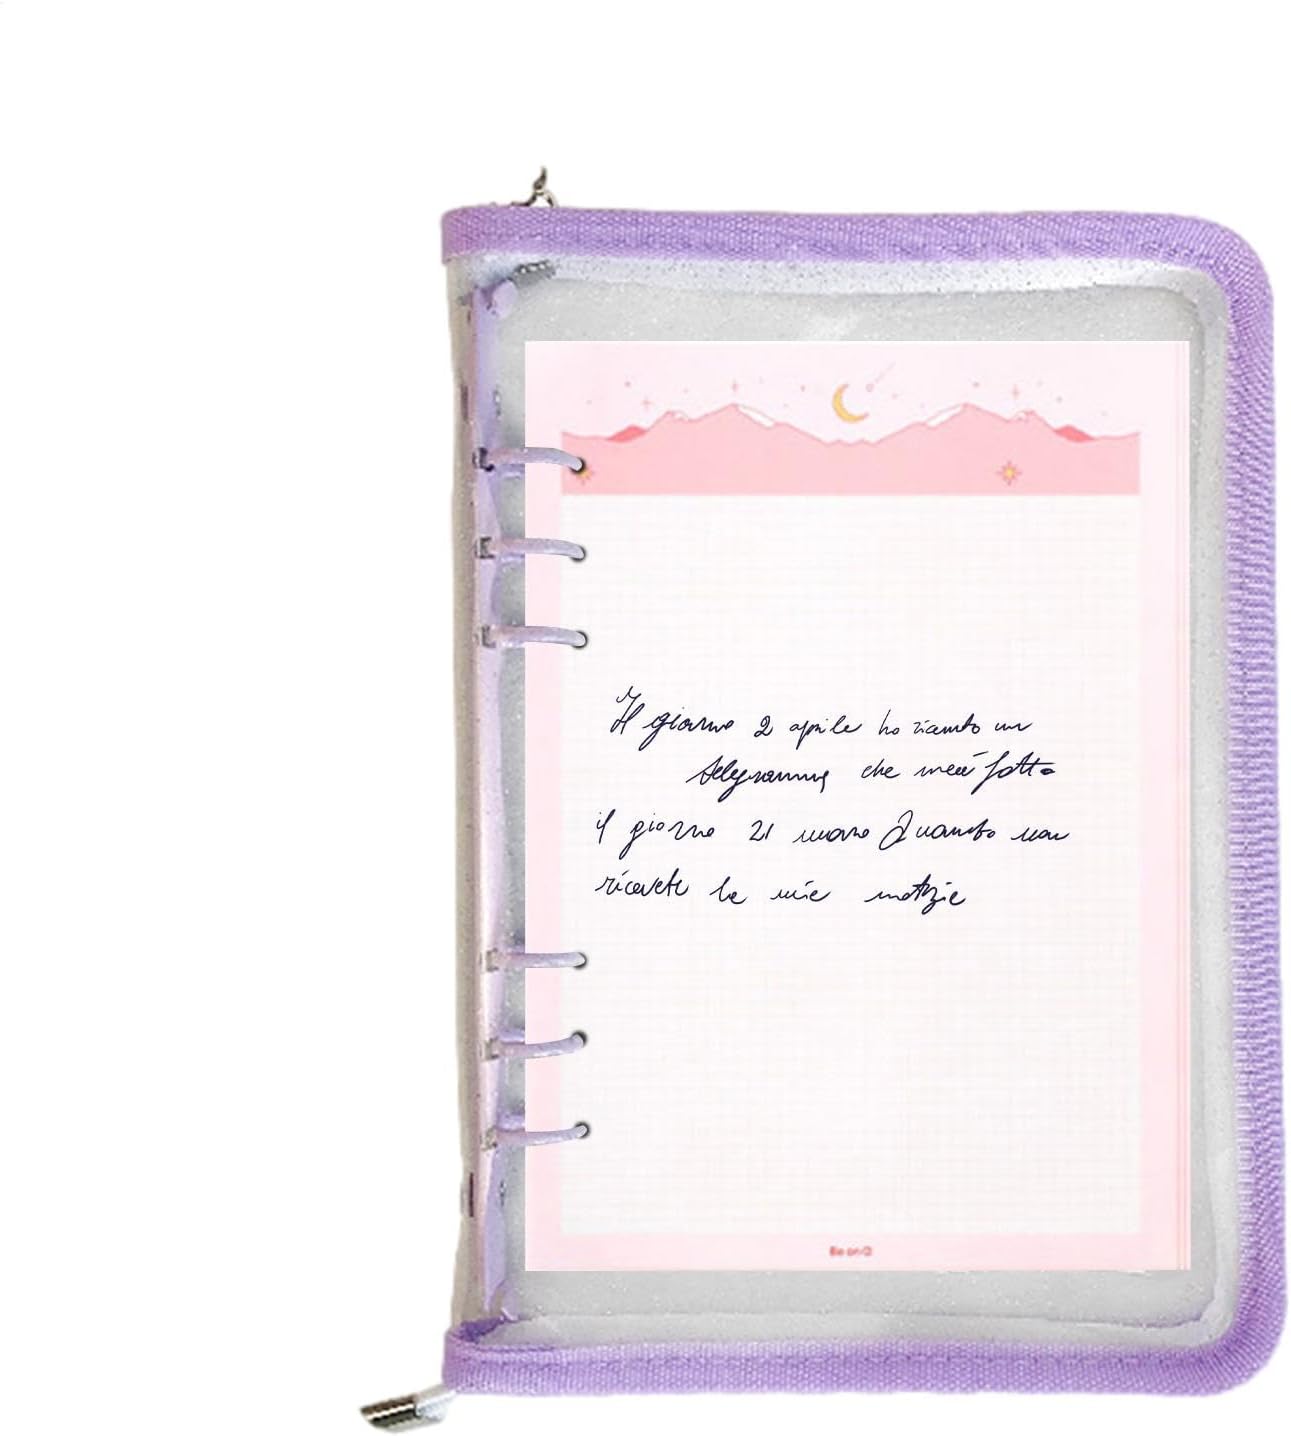 Il giorno 2 aprile ho ricevuto un
telegramma che meté fatto
il giorno 21 marzo Quando non
ricevete le mie notizie